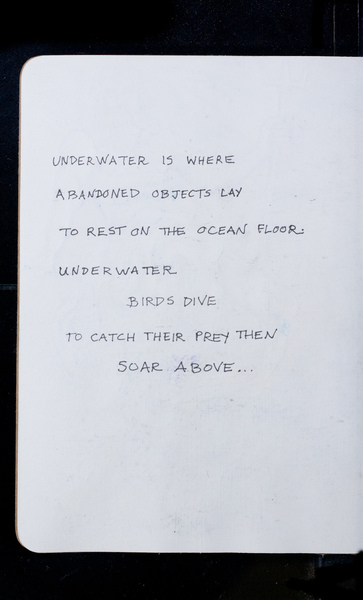 UNDERWATER IS WHERE
ABANDONED OBJECTS LAY
TO REST ON THE OCEAN FLOOR.
UNDERWATER
BIRDS DIVE
TO CATCH THEIR PREY THEN
SOAR ABOVE...